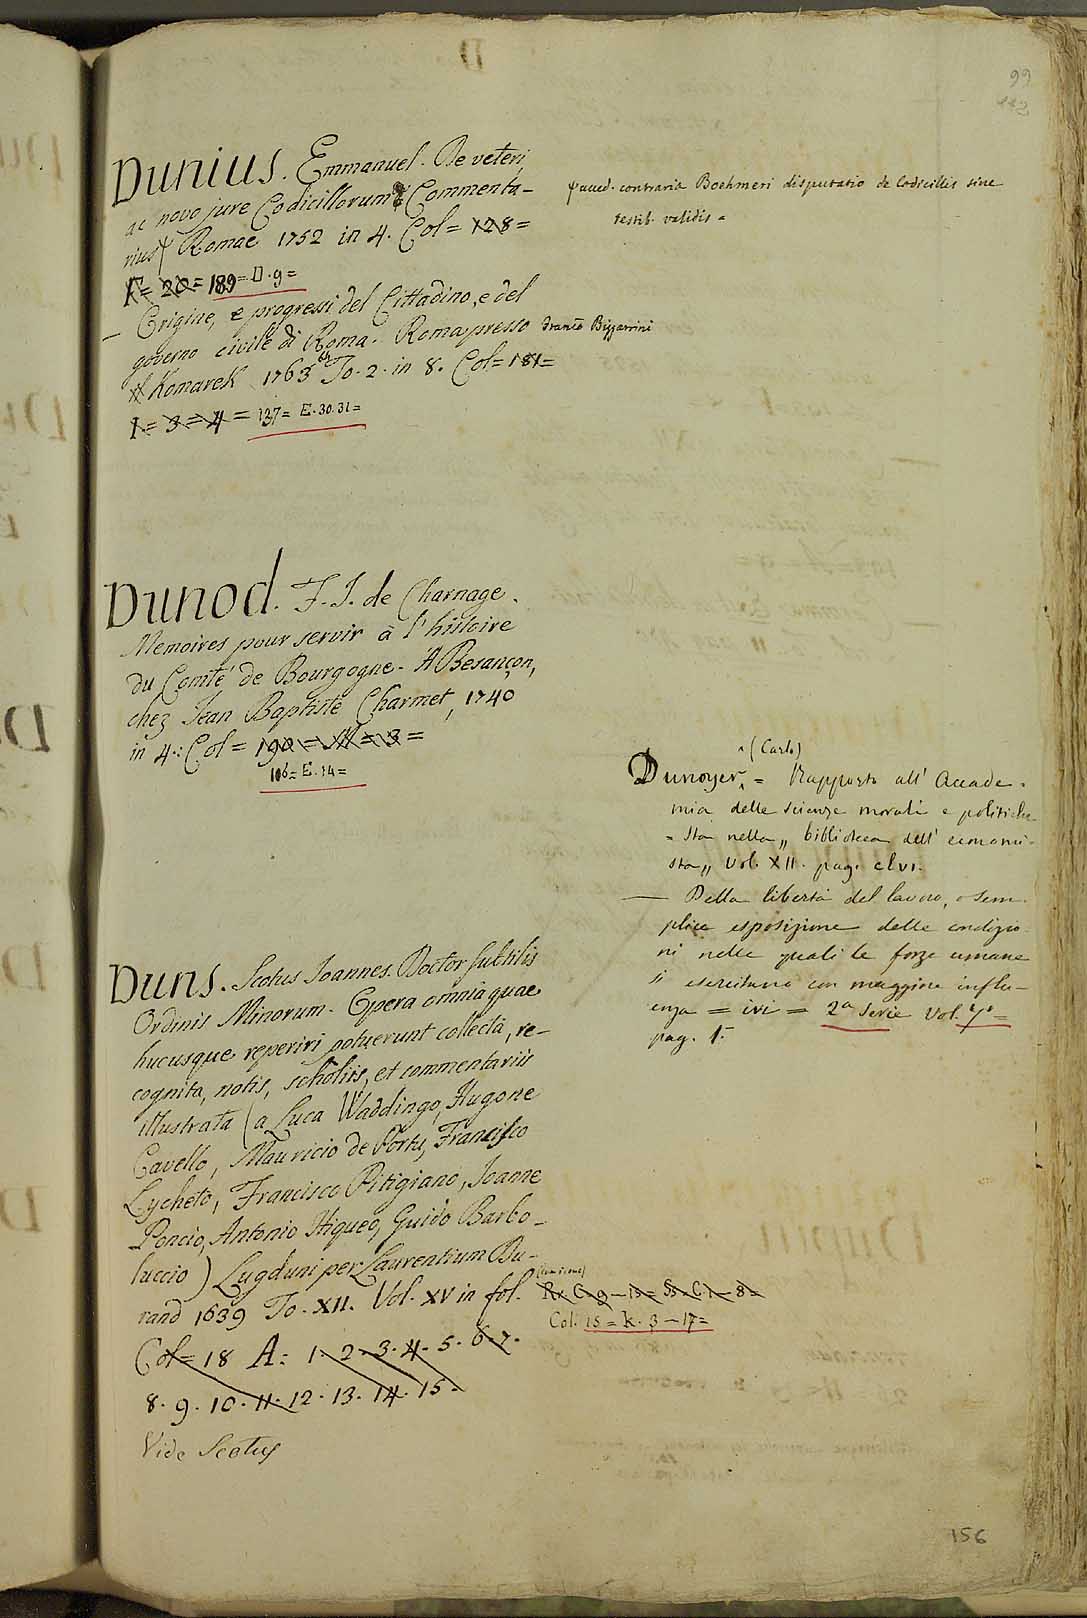 99
112
Dunius. Emmanuel. De veteri,
ac novo jure Codicillorum Commenta-
rius Romae 1752 in 4. Col= 128=
F= 20= 189= D. 9=
accéd. contraria Boehmeri disputatio de Codicillis sine
testib. validis =
— Origine, e progressi del Cittadino, e del
governo civile di Roma. Roma presso Franc̃o Bizzarrini
il Komarek 1763 To. 2. in 8. Col= 181=
I= 3= 4= 137= E. 30. 31=
Dunod. F. I. de Charnage.
Memoires pour servir à l'histoire
du Comté de Bourgogne. A Besançon,
chez Jean Baptiste Charmet, 1740
in 4.: Col= 190= = 3=
106= E. 14=
^(Carlo)
Dunoyer^ = Rapporto all' Accade-
mia delle scienze morali e politiche
= sta nella „ biblioteca dell' economi-
sta „ Vol. XII. pag. clvi.
— Della libertà del lavoro, o sem-
plice esposizione delle condizio-
ni nelle quali le forze umane
si esercitano con maggiore influ-
enza = ivi = 2a serie Vol. 7o =
pag. 1.
Duns. Scotus Ioannes. Doctor subtilis
Ordinis Minorum. Opera omnia quae
hucusque reperiri potuerunt collecta, re-
cognita, notis, scholiis, et commentariis
illustrata (a Luca Waddingo, Hugone
Cavello, Mauricio de Portu, Francisco
Lycheto, Francisco Pitigiano, Joanne
Poncio, Antonio Hiqueo, Guido Barbo-
luccio) Lugduni per Laurentium Du-
rand 1639 To. XII. Vol. XV in fol.
Col. 15= K. 3—17=
Col= 18 A= 1. 2. 3. 4. 5. 6. 7.
8. 9. 10. 11. 12. 13. 14. 15.
Vide Scotus
156